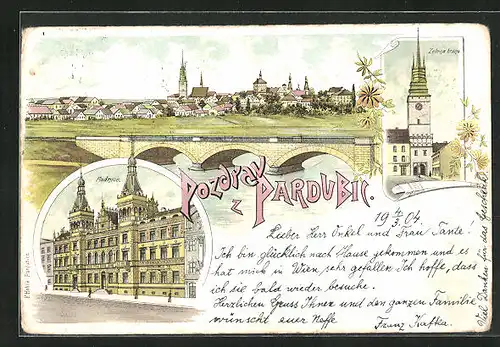 Zelená brána
Radnice.
Pozdrav
z Pardubic.
19 4/3 04
Lieber Herr Onkel und Frau Tante!
Ich bin glücklich nach Hause gekommen und es
hat mich in Wien sehr gefallen Ich hoffe, dass
ich sie bald wieder besuche.
Herzlichen Gruss Ihnen und den ganzen Familie
wünscht euer Neffe
Franz Kafka.
Viel Danken für das Geschenk!